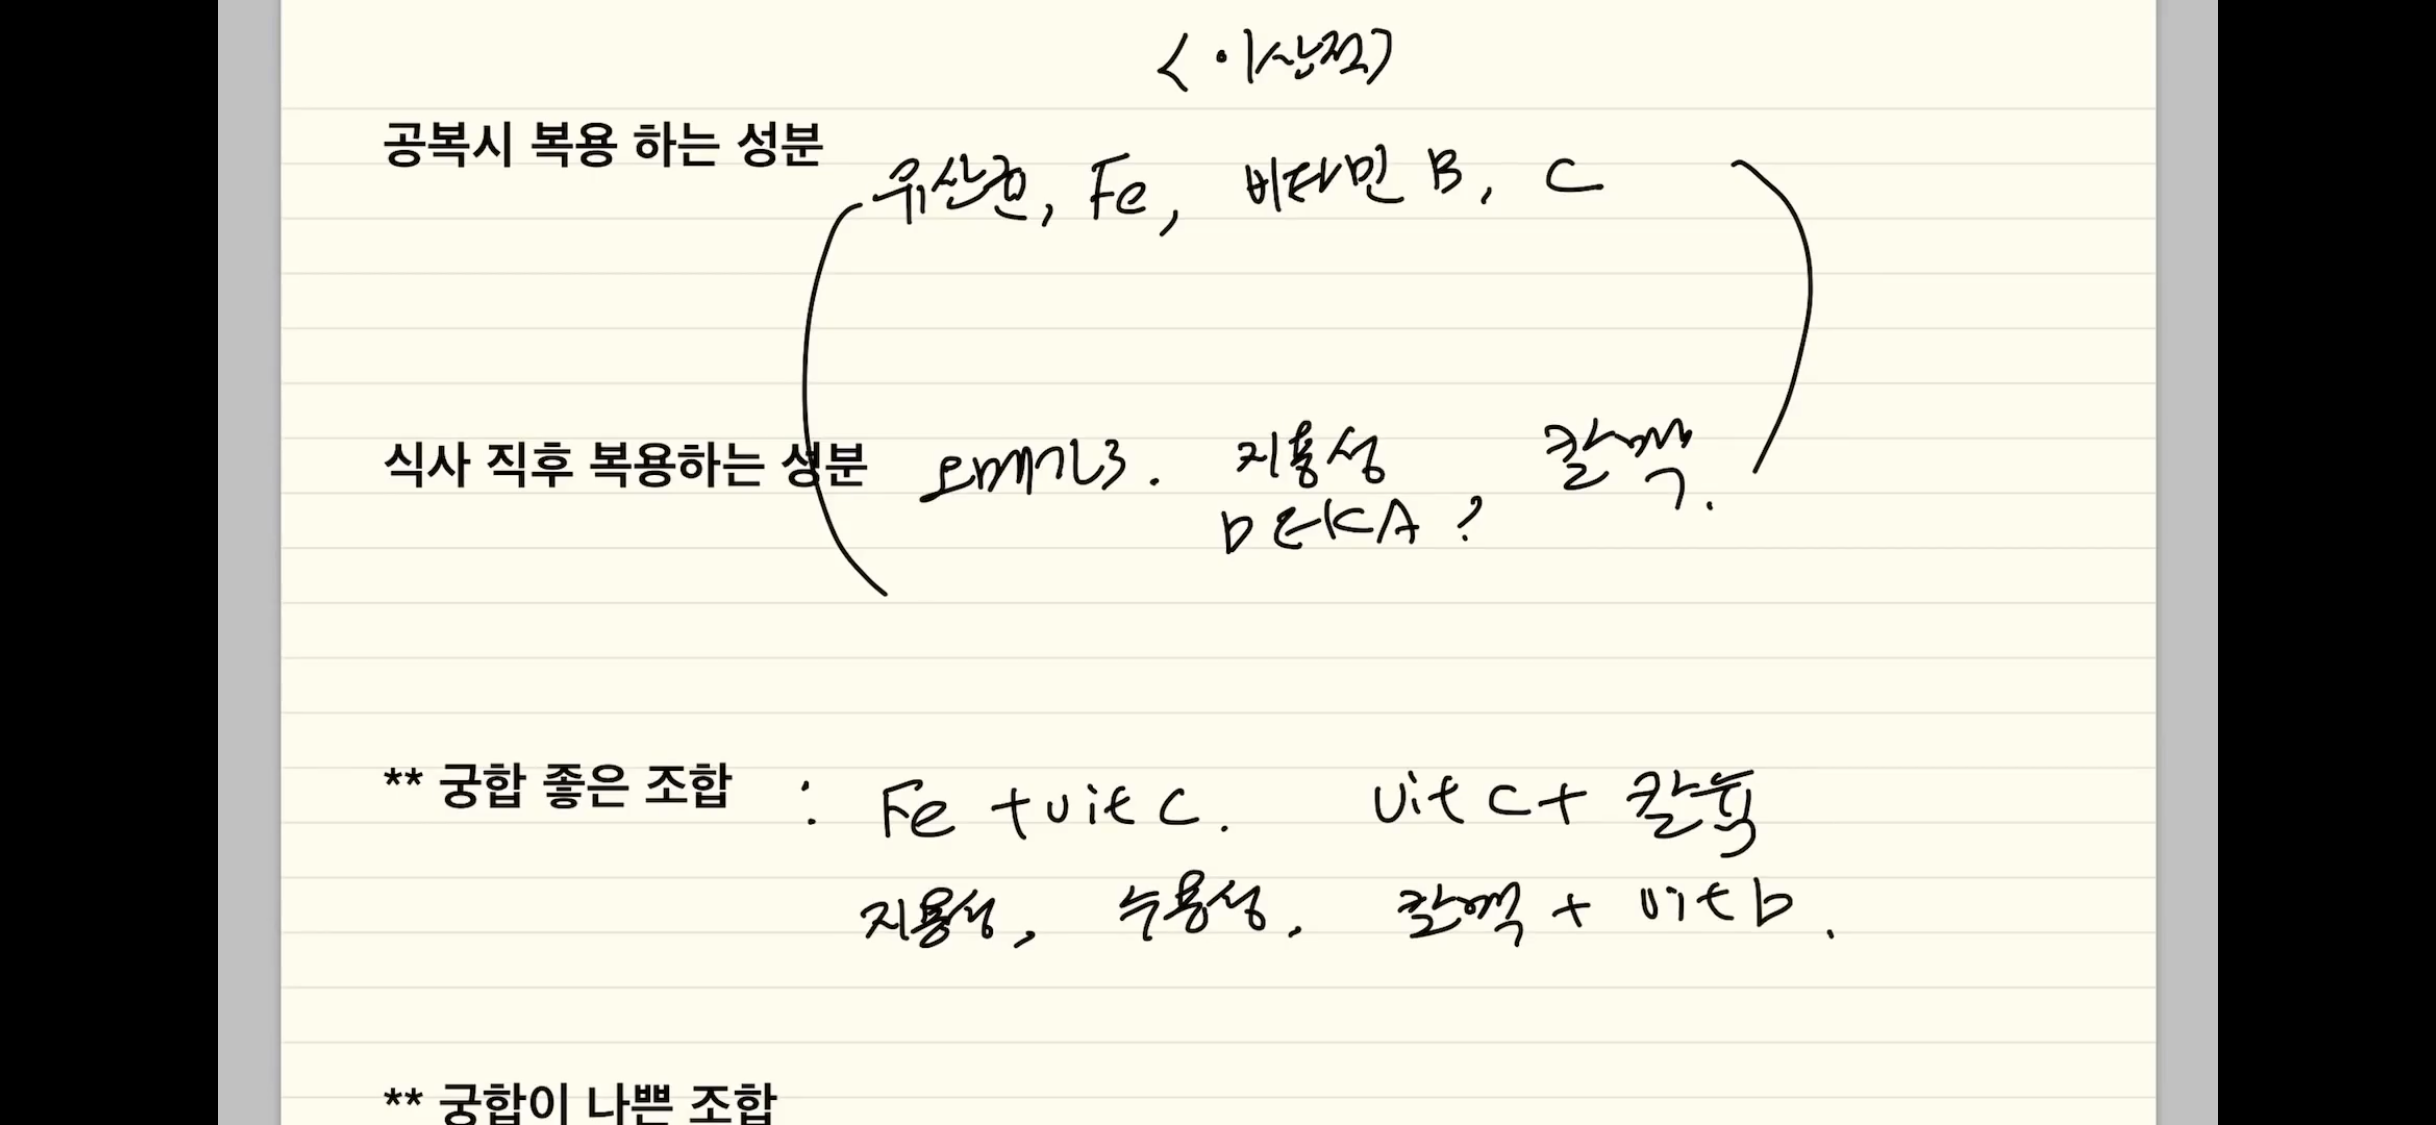 <이상적>
공복시 복용 하는 성분 유산균, Fe, 비타민 B, C
식사 직후 복용하는 성분 오메가3. 지용성 칼맥.
DEKA?
** 궁합 좋은 조합 : Fe + vit C. vit C + 칼슘
지용성, 수용성. 칼맥 + vit D.
** 궁합이 나쁜 조합